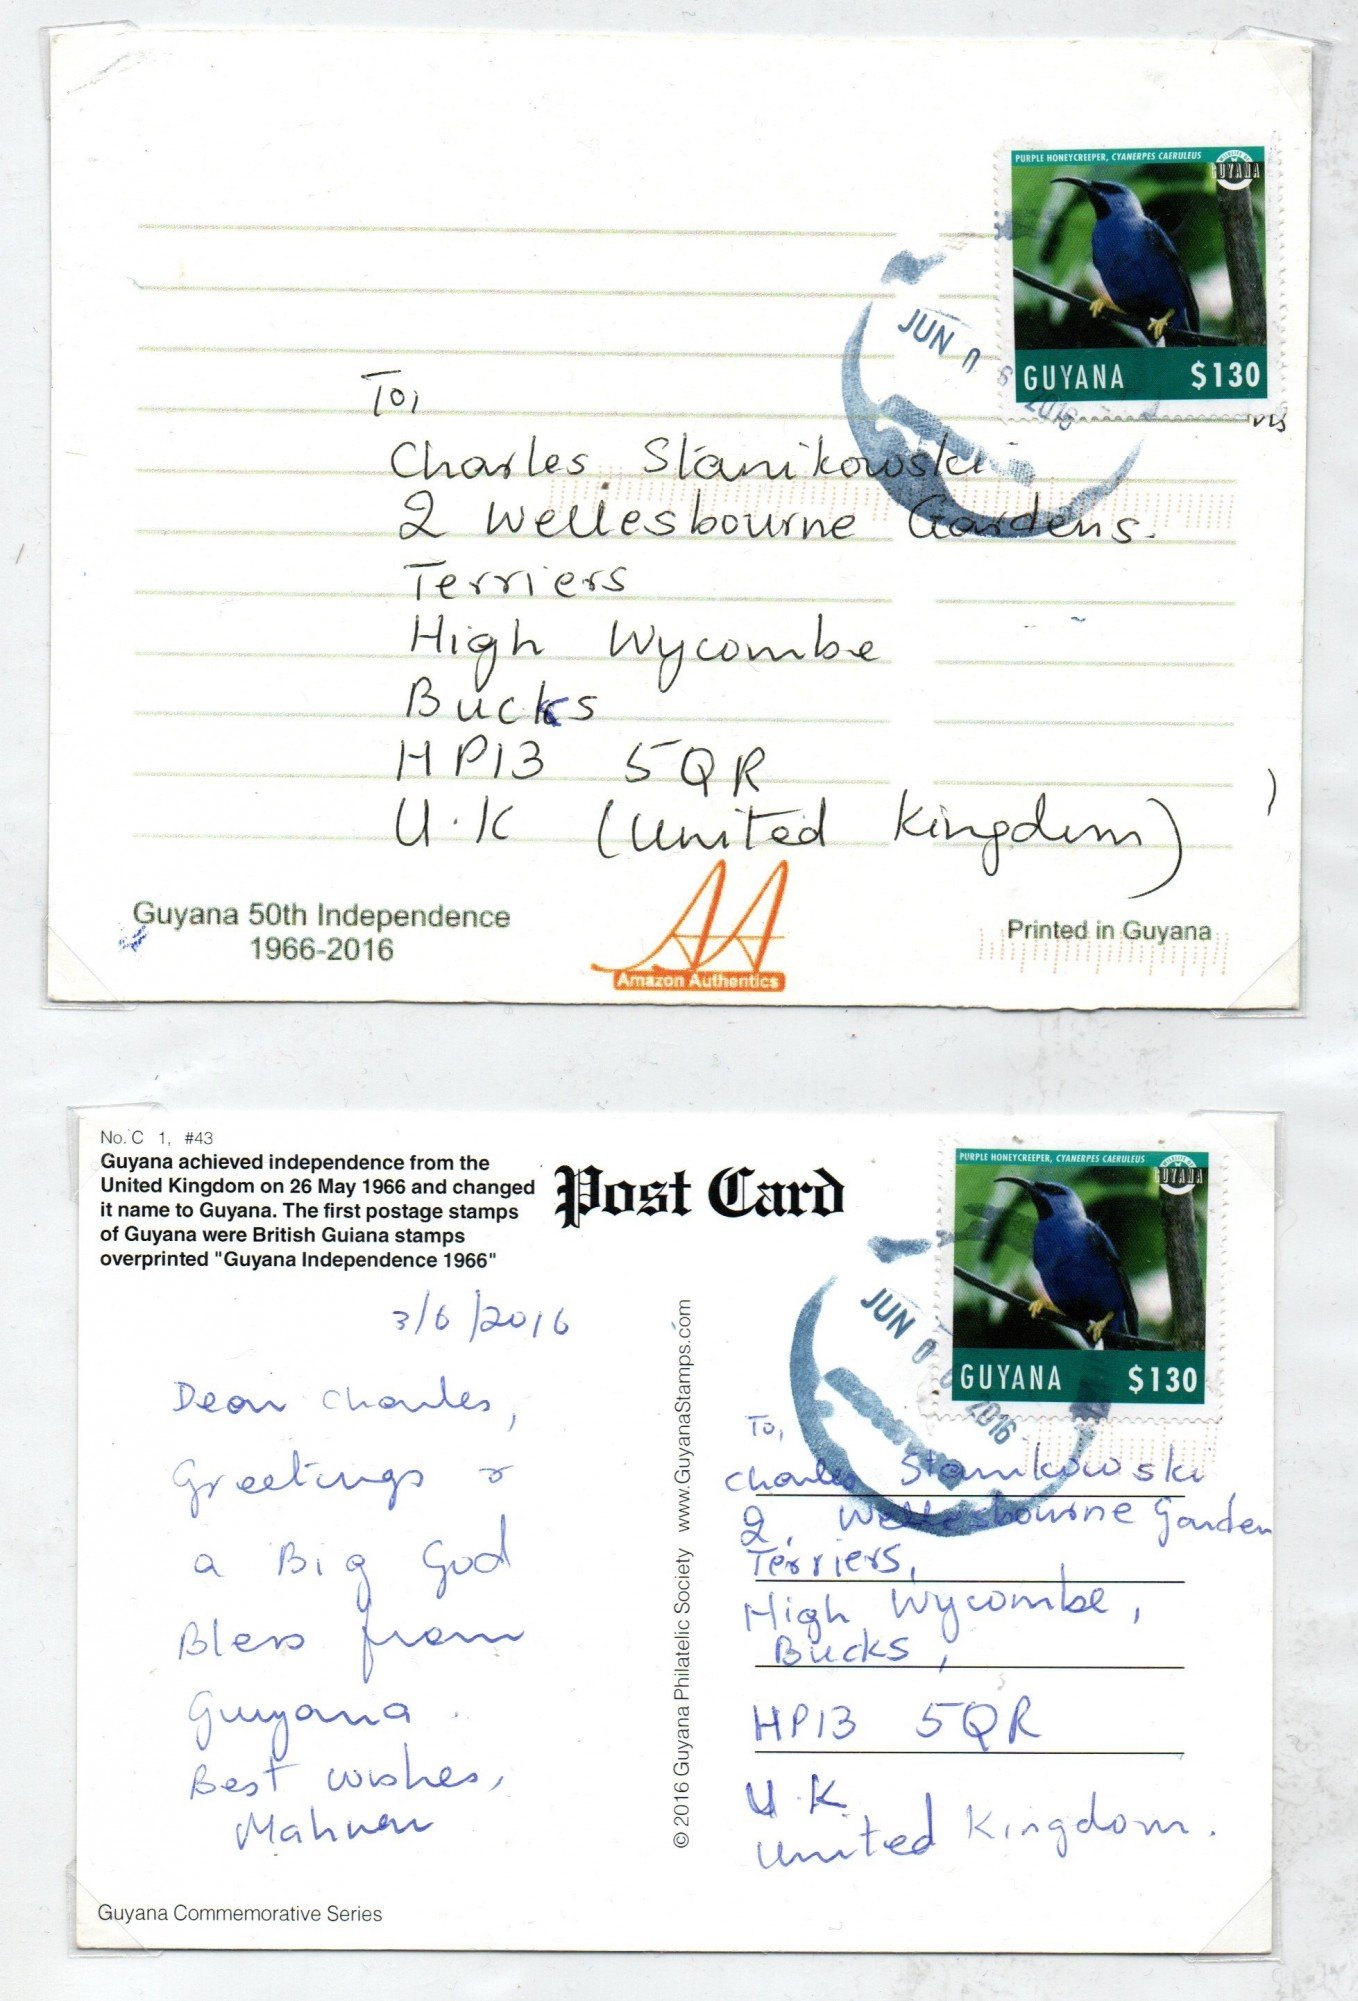 PURPLE HONEYCREEPER, CYANERPES CAERULEUS
GUYANA
GUYANA $130
JUN 0 6 2016
To,
Charles Stanikowski
2 Wellesbourne Gardens.
Terriers
High Wycombe
Bucks
HP13 5QR
U.K (United Kingdom)
Guyana 50th Independence
1966-2016
AA
Amazon Authentics
Printed in Guyana
No. C 1, #43
Guyana achieved independence from the
United Kingdom on 26 May 1966 and changed
it name to Guyana. The first postage stamps
of Guyana were British Guiana stamps
overprinted "Guyana Independence 1966"
Post Card
PURPLE HONEYCREEPER, CYANERPES CAERULEUS
GUYANA
GUYANA $130
JUN 0 6 2016
3/6/2016
Dear Charles,
Greetings &
a Big God
Bless from
Guyana.
Best wishes,
© 2016 Guyana Philatelic Society www.GuyanaStamps.com
To,
Charles Stanikowski
2, Wellesbourne Garden
Terriers,
High Wycombe,
Bucks,
HP13 5QR
U.K
United Kingdom.
Guyana Commemorative Series